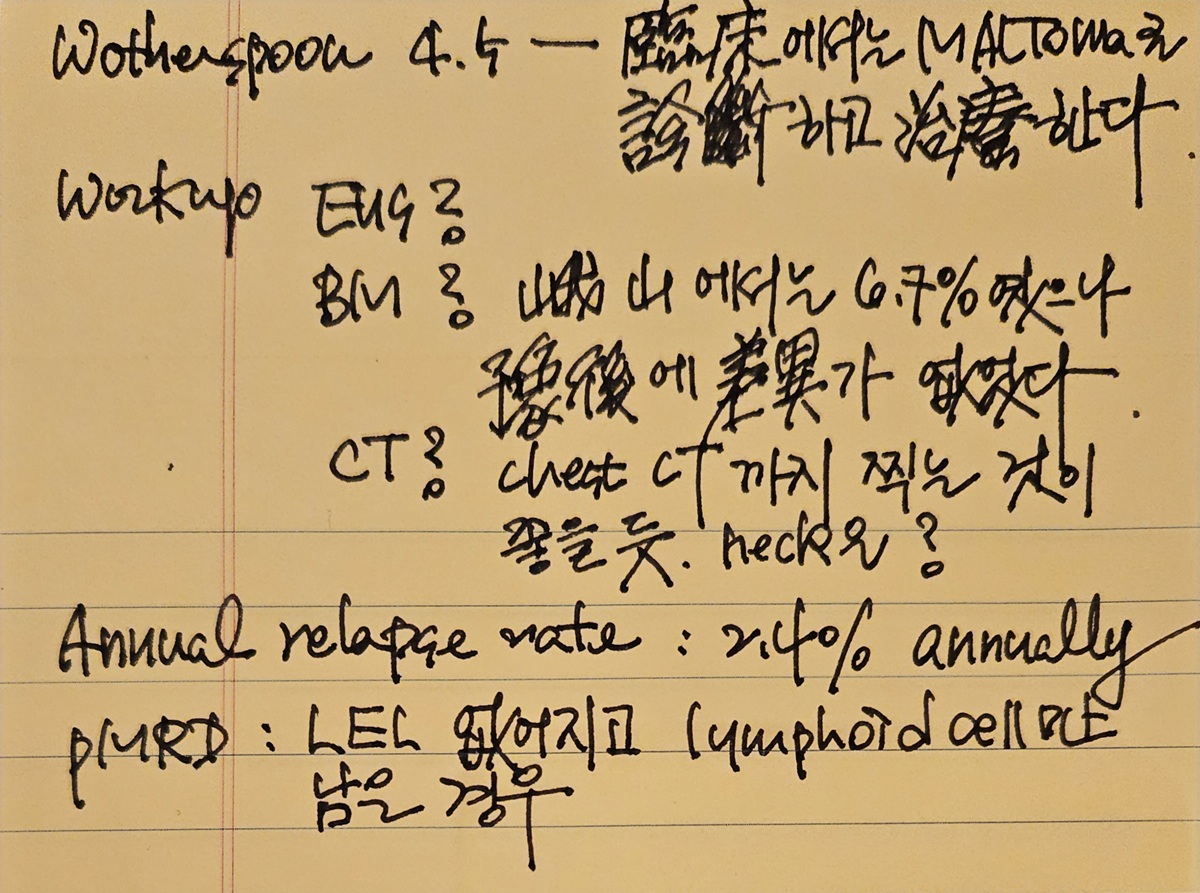 Wotherspoon 4.5 — 臨床에서는 MALToma로
診斷하고 治療한다.
Workup EUS?
BM? 峨山에서는 6.7%였으나
豫後에 差異가 없었다.
CT? chest CT까지 찍는 것이
좋을 듯. neck은?
Annual relapse rate : 2.4% annually
pMRD : LEL 없어지고 lymphoid cell만
남은 경우